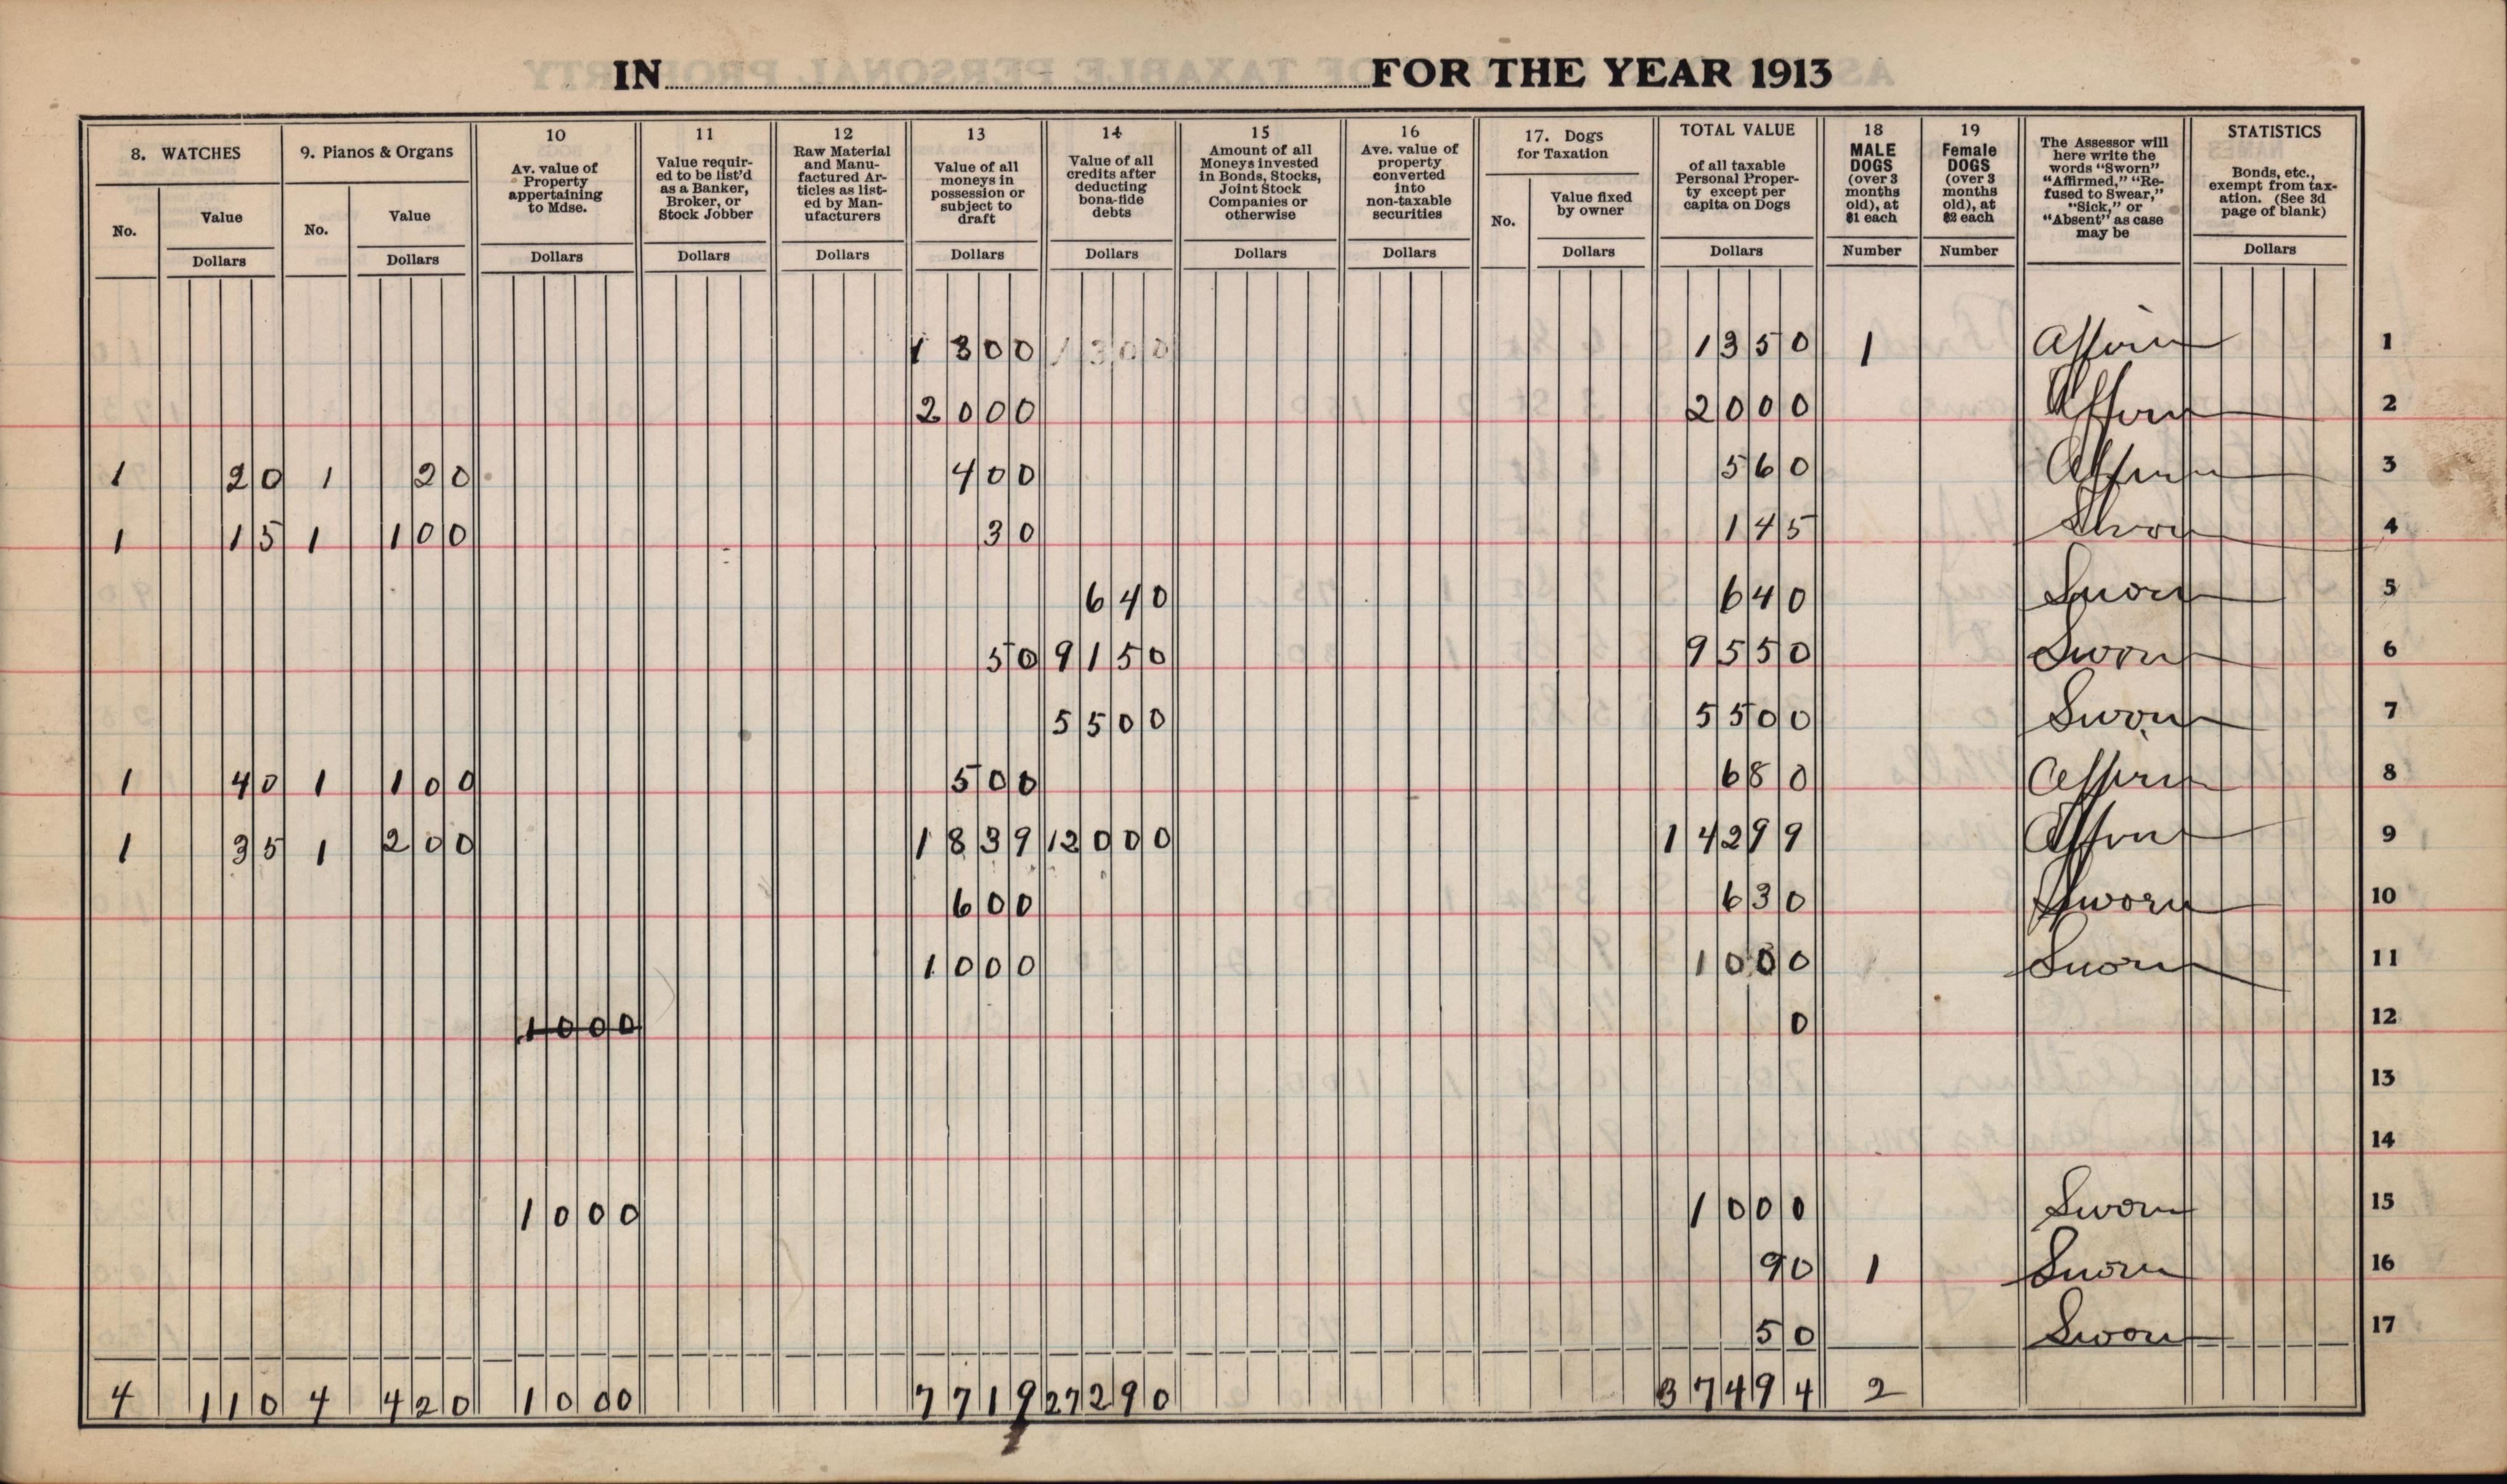 IN FOR THE YEAR 1913
8. WATCHES
No.
Value
Dollars
9. Pianos & Organs
No.
Value
Dollars
10
Av. value of
Property
appertaining
to Mdse.
Dollars
11
Value requir-
ed to be list'd
as a Banker,
Broker, or
Stock Jobber
Dollars
12
Raw Material
and Manu-
factured Ar-
ticles as list-
ed by Man-
ufacturers
Dollars
13
Value of all
moneys in
possession or
subject to
draft
Dollars
14
Value of all
credits after
deducting
bona-fide
debts
Dollars
15
Amount of all
Moneys invested
in Bonds, Stocks,
Joint Stock
Companies or
otherwise
Dollars
16
Ave. value of
property
converted
into
non-taxable
securities
Dollars
17. Dogs
for Taxation
No.
Value fixed
by owner
Dollars
TOTAL VALUE
of all taxable
Personal Proper-
ty except per
capita on Dogs
Dollars
18
MALE
DOGS
(over 3
months
old), at
$1 each
Number
19
Female
DOGS
(over 3
months
old), at
$2 each
Number
The Assessor will
here write the
words "Sworn"
"Affirmed," "Re-
fused to Swear,"
"Sick," or
"Absent" as case
may be
STATISTICS
Bonds, etc.,
exempt from tax-
ation. (See 3d
page of blank)
Dollars
1300 1300 1350 1 Affirm 1
2000 2000 Affirm 2
1 20 1 20 400 560 Affirm 3
1 15 1 100 30 145 Sworn 4
640 640 Sworn 5
50 9150 9550 Sworn 6
5500 5500 Sworn 7
1 40 1 100 500 680 Affirm 8
1 35 1 200 1839 12000 14299 Affirm 9
600 630 Sworn 10
1000 1000 Sworn 11
1000 0 12
13
14
1000 1000 Sworn 15
90 1 Sworn 16
50 Sworn 17
4 110 4 420 1000 7719 27290 37494 2